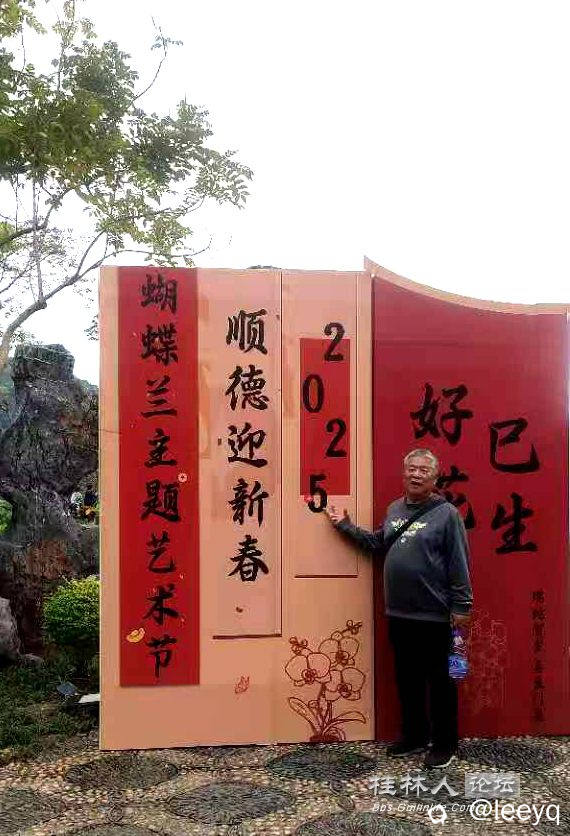 蝴蝶兰主题艺术节
顺德迎新春
2025
好花
巳生
桂林人论坛
Bbs.Guilinlife.Com
@leeyq